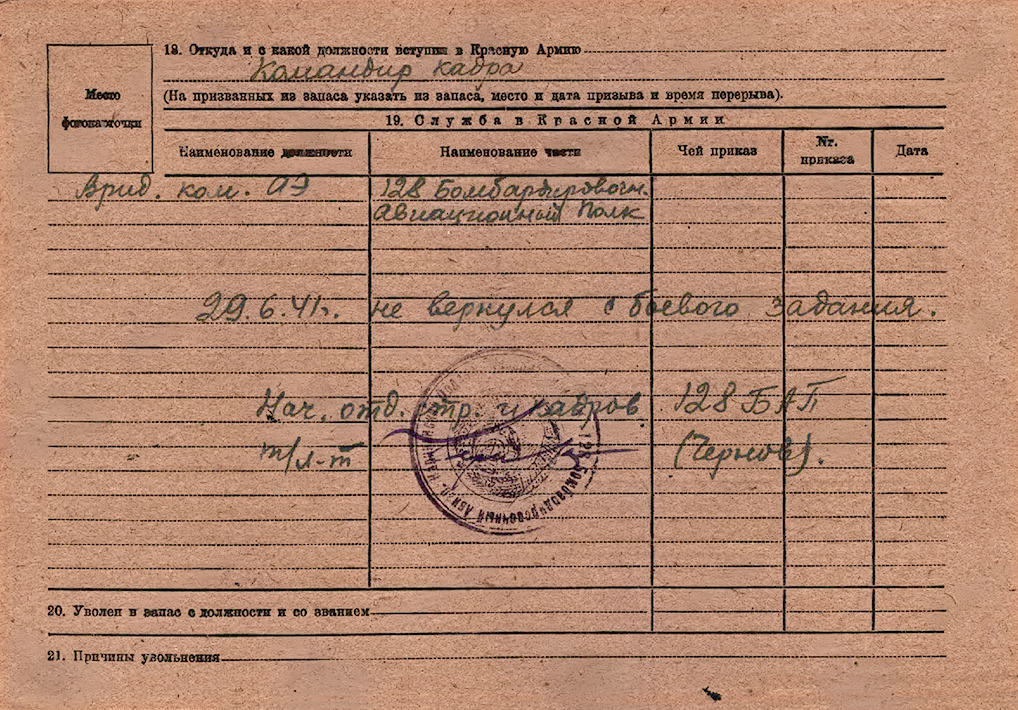 18. Откуда и с какой должности вступил в Красную Армию
Командир кадра
(На призванных из запаса указать из запаса, место и дата призыва и время перерыва).
Место
фотокарточки
19. Служба в Красной Армии
Наименование должности
Наименование части
Чей приказ
№. приказа
Дата
Врид. ком. АЭ
128 Бомбардировочн.
Авиационный Полк
29.6.41г. не вернулся с боевого задания.
Нач. отд. стр. и кадров 128 БАП
т/л-т (Чернов).
128 Бомбардировочный Авиац.
20. Уволен в запас с должности и со званием
21. Причины увольнения